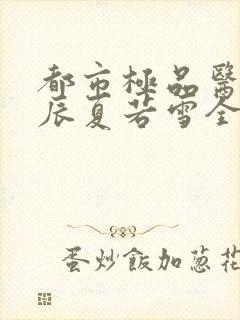 都市極品醫
辰夏若雪全
蛋炒飯加葱花